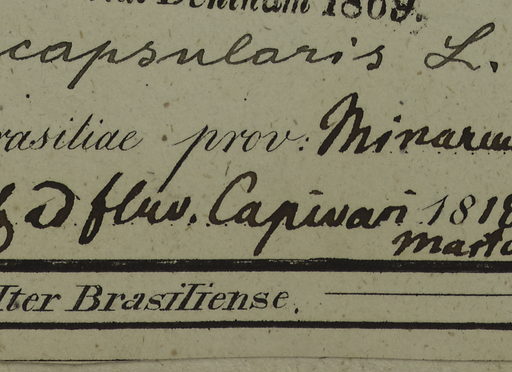 Bentham 1869.
capsularis L.
rasiliae prov: Minarum
ad fluv. Capivari 1818
Marti
Iter Brasiliense.